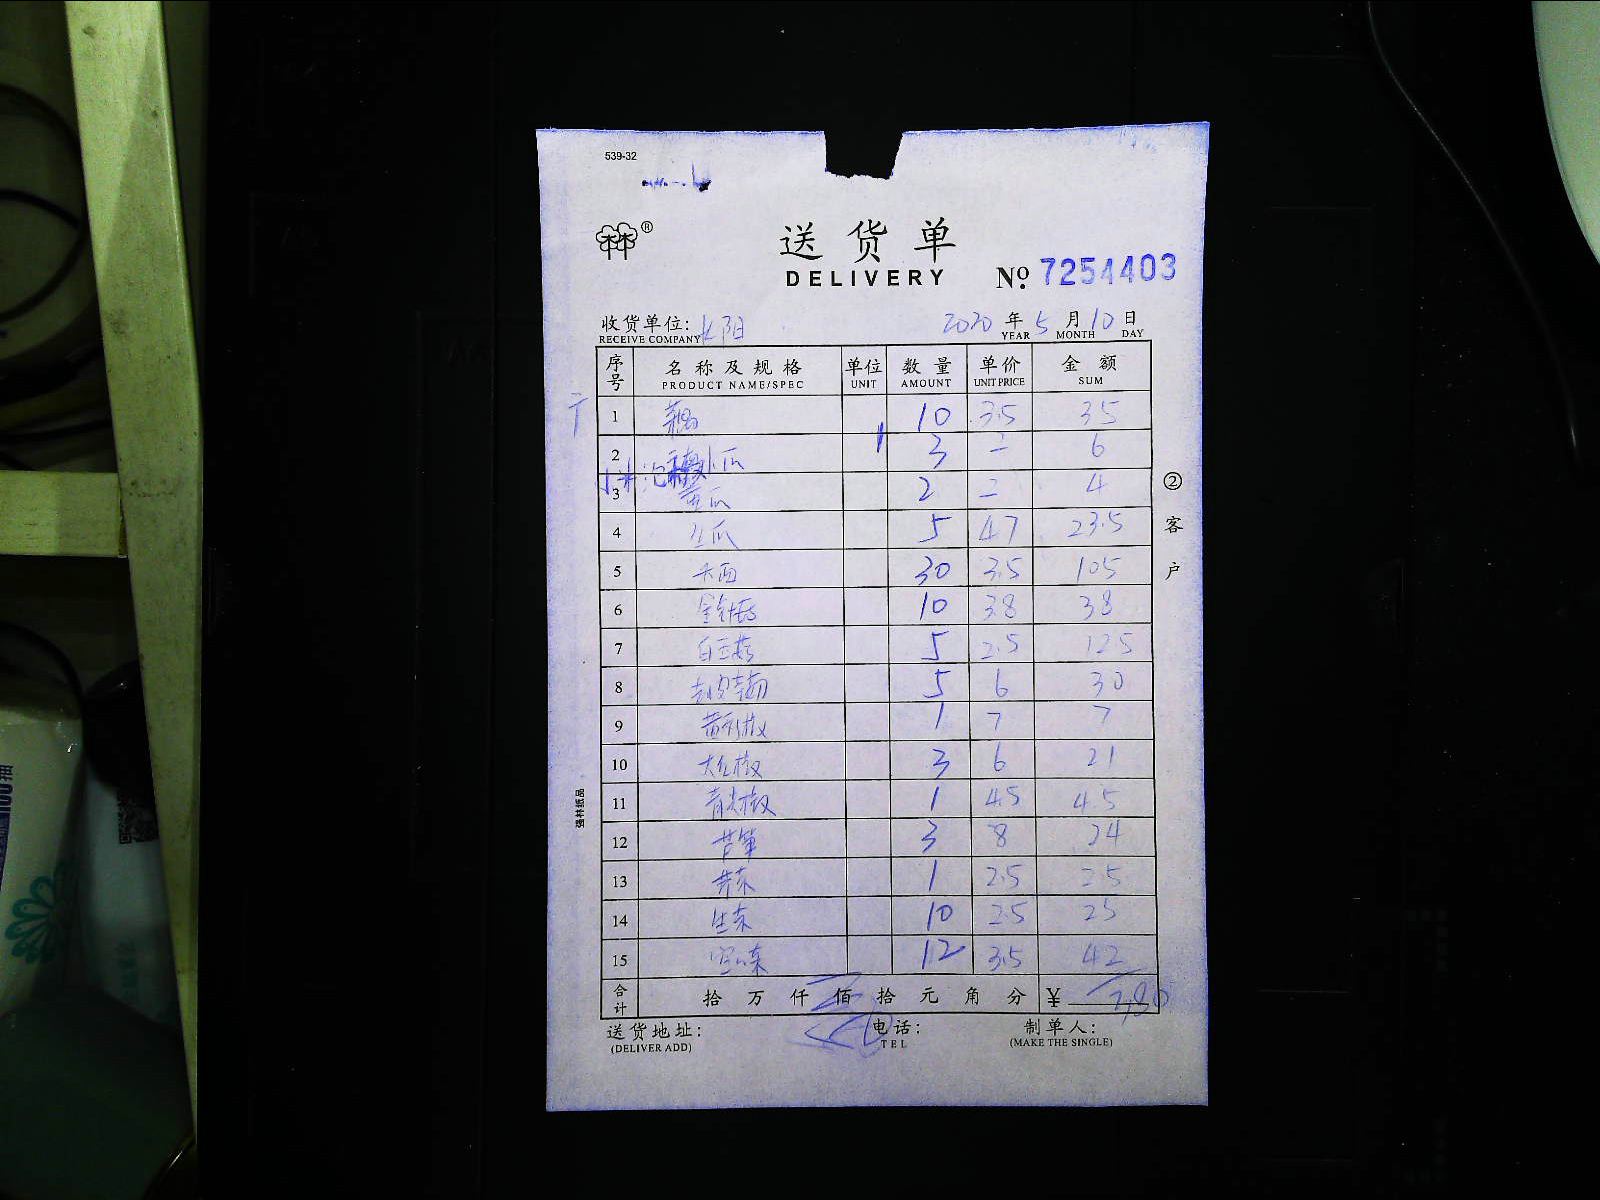 539-32
送货单
DELIVERY
№ 7254403
收货单位: 长阳 2020年5月10日
RECEIVE COMPANY YEAR MONTH DAY
序号 名称及规格 单位 数量 单价 金额
PRODUCT NAME/SPEC UNIT AMOUNT UNIT PRICE SUM
1 10 3.5 35
2 小瓜 3 二 6
3 黄瓜 2 二 4
4 丝瓜 5 4.7 23.5
5 大西 30 3.5 105
6 金针菇 10 3.8 38
7 白玉菇 5 2.5 12.5
8 5 6 30
9 1 7 7
10 大红椒 3 6 21
11 青尖椒 1 4.5 4.5
12 3 8 24
13 1 2.5 2.5
14 生菜 10 2.5 25
15 12 3.5 42
合计 拾 万 仟 佰 拾 元 角 分 ¥
送货地址: 电话: 制单人:
(DELIVER ADD) TEL (MAKE THE SINGLE)
②客户
强林纸品